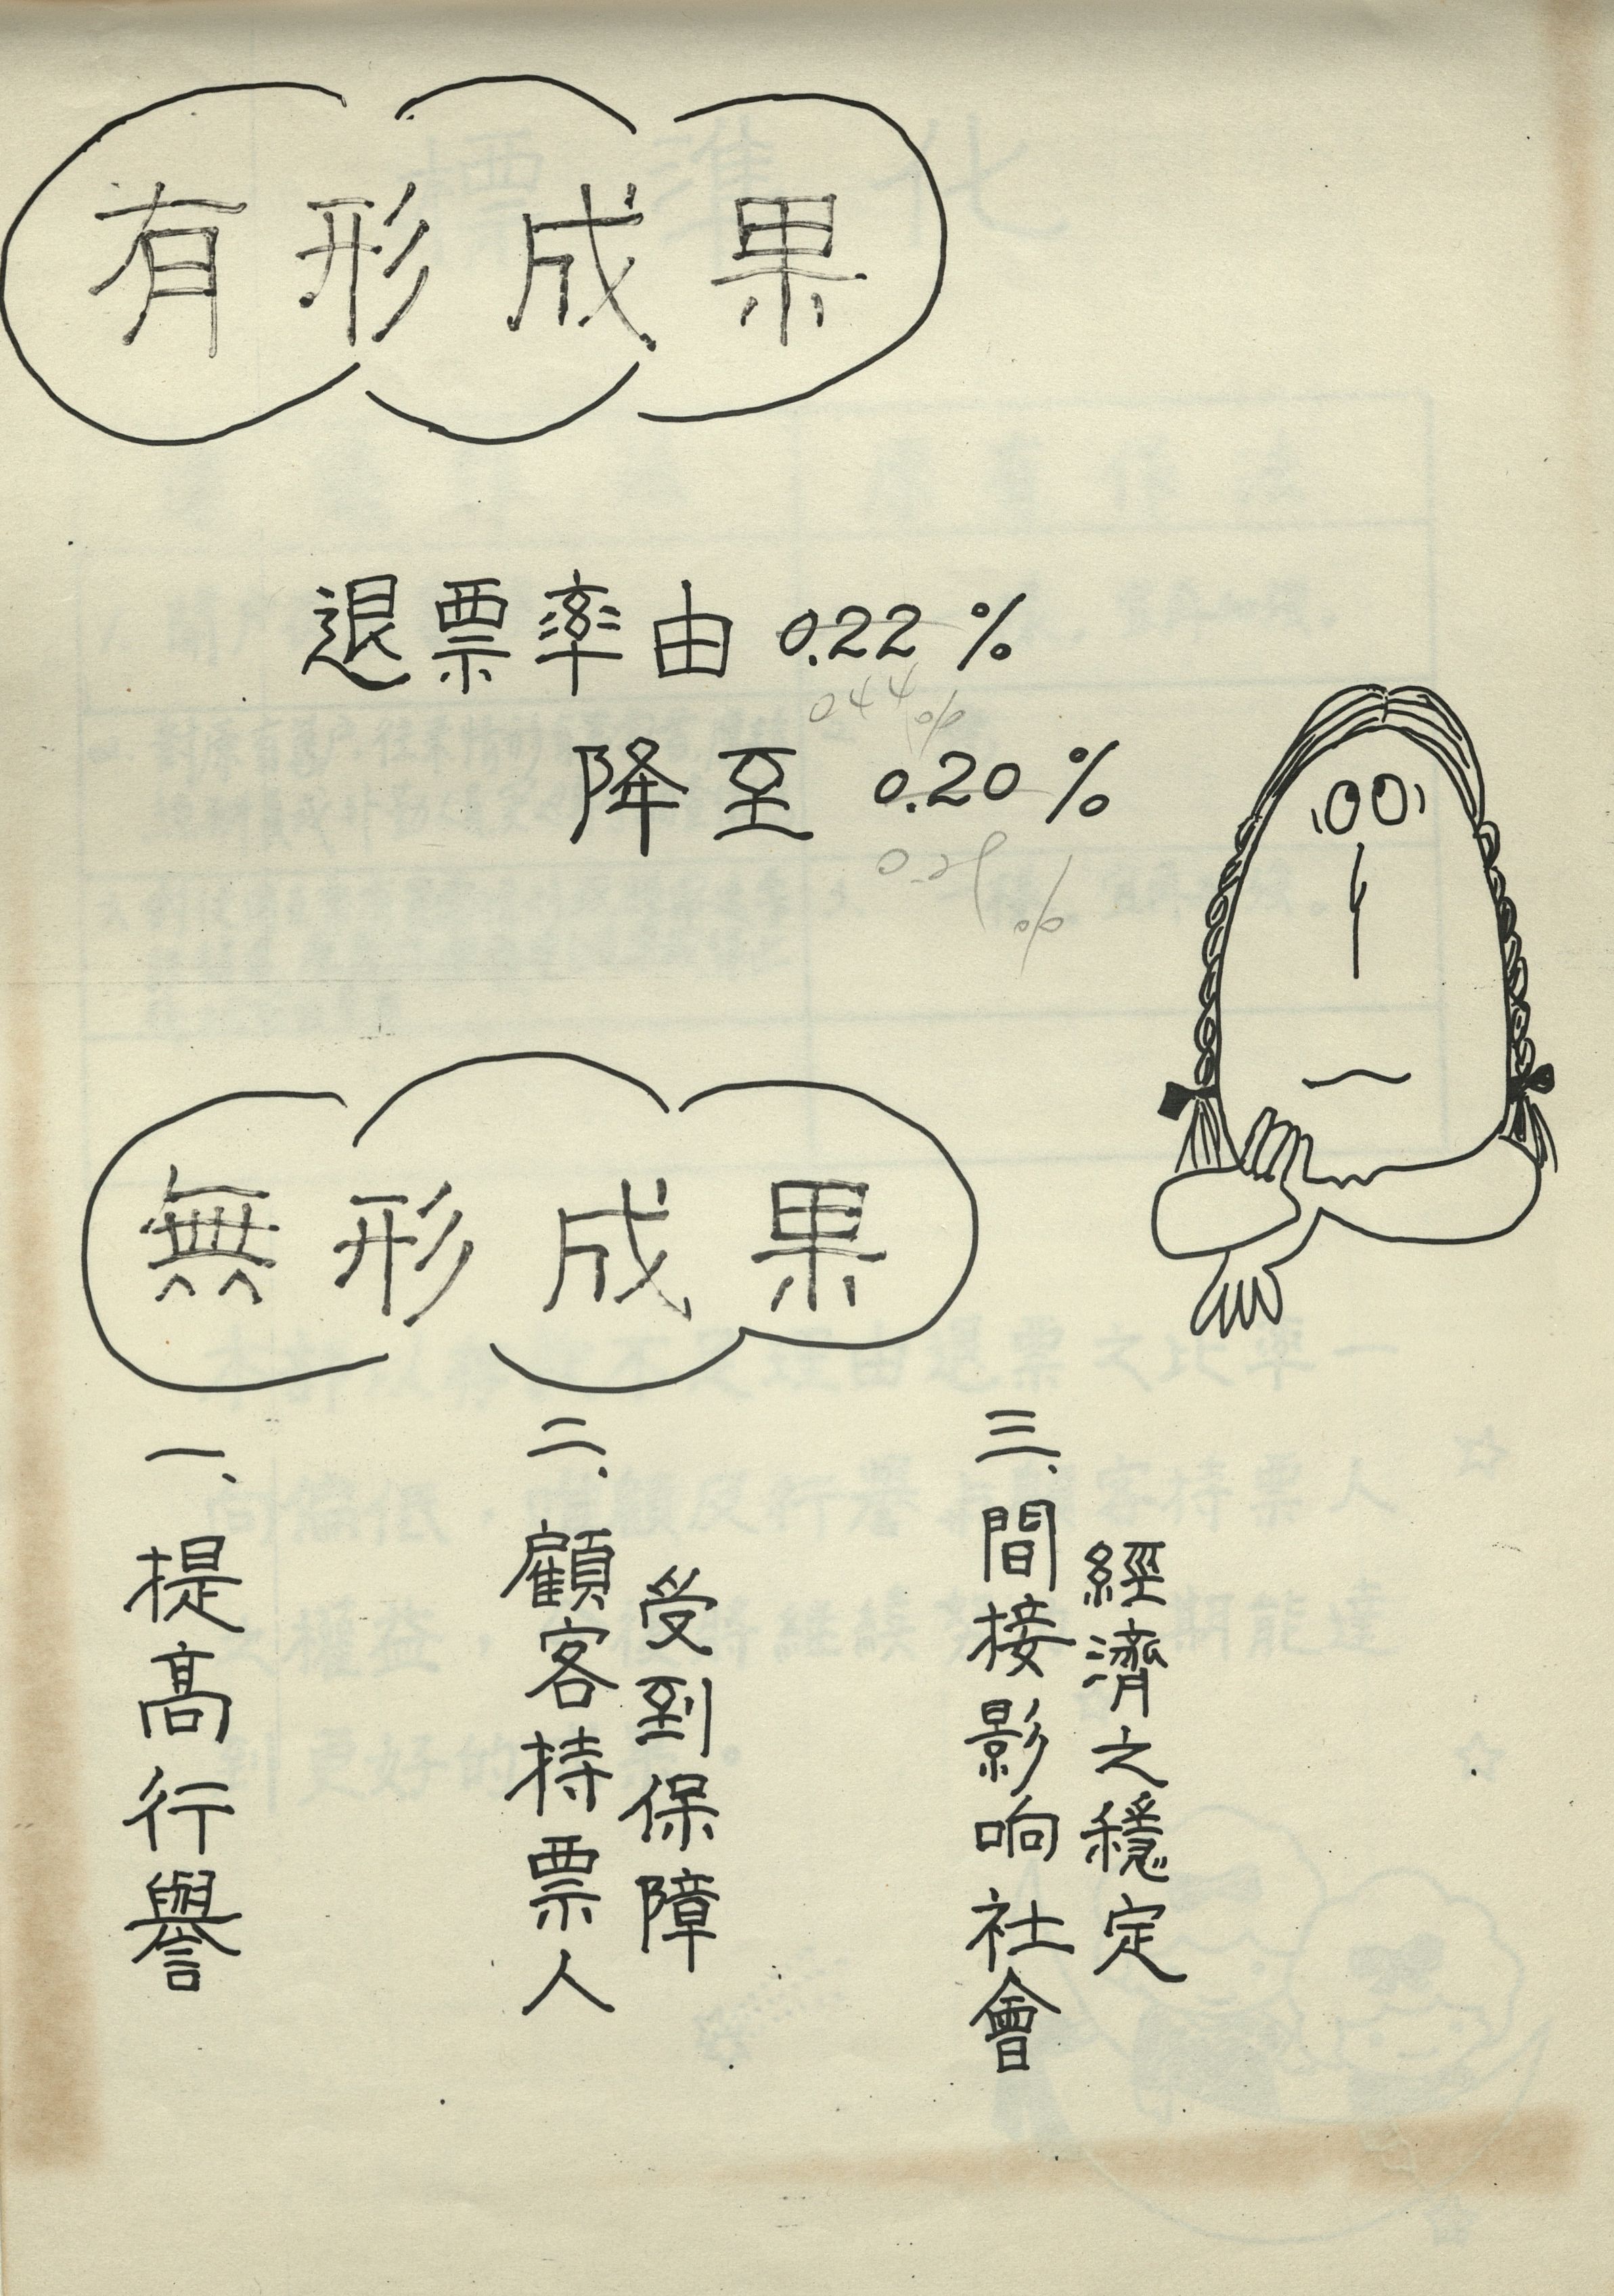 有形成果
退票率由 0.22 %
0.44%
降至 0.20 %
無形成果
一、提高行譽
二、顧客持票人
受到保障
三、間接影响社會
經濟之穩定